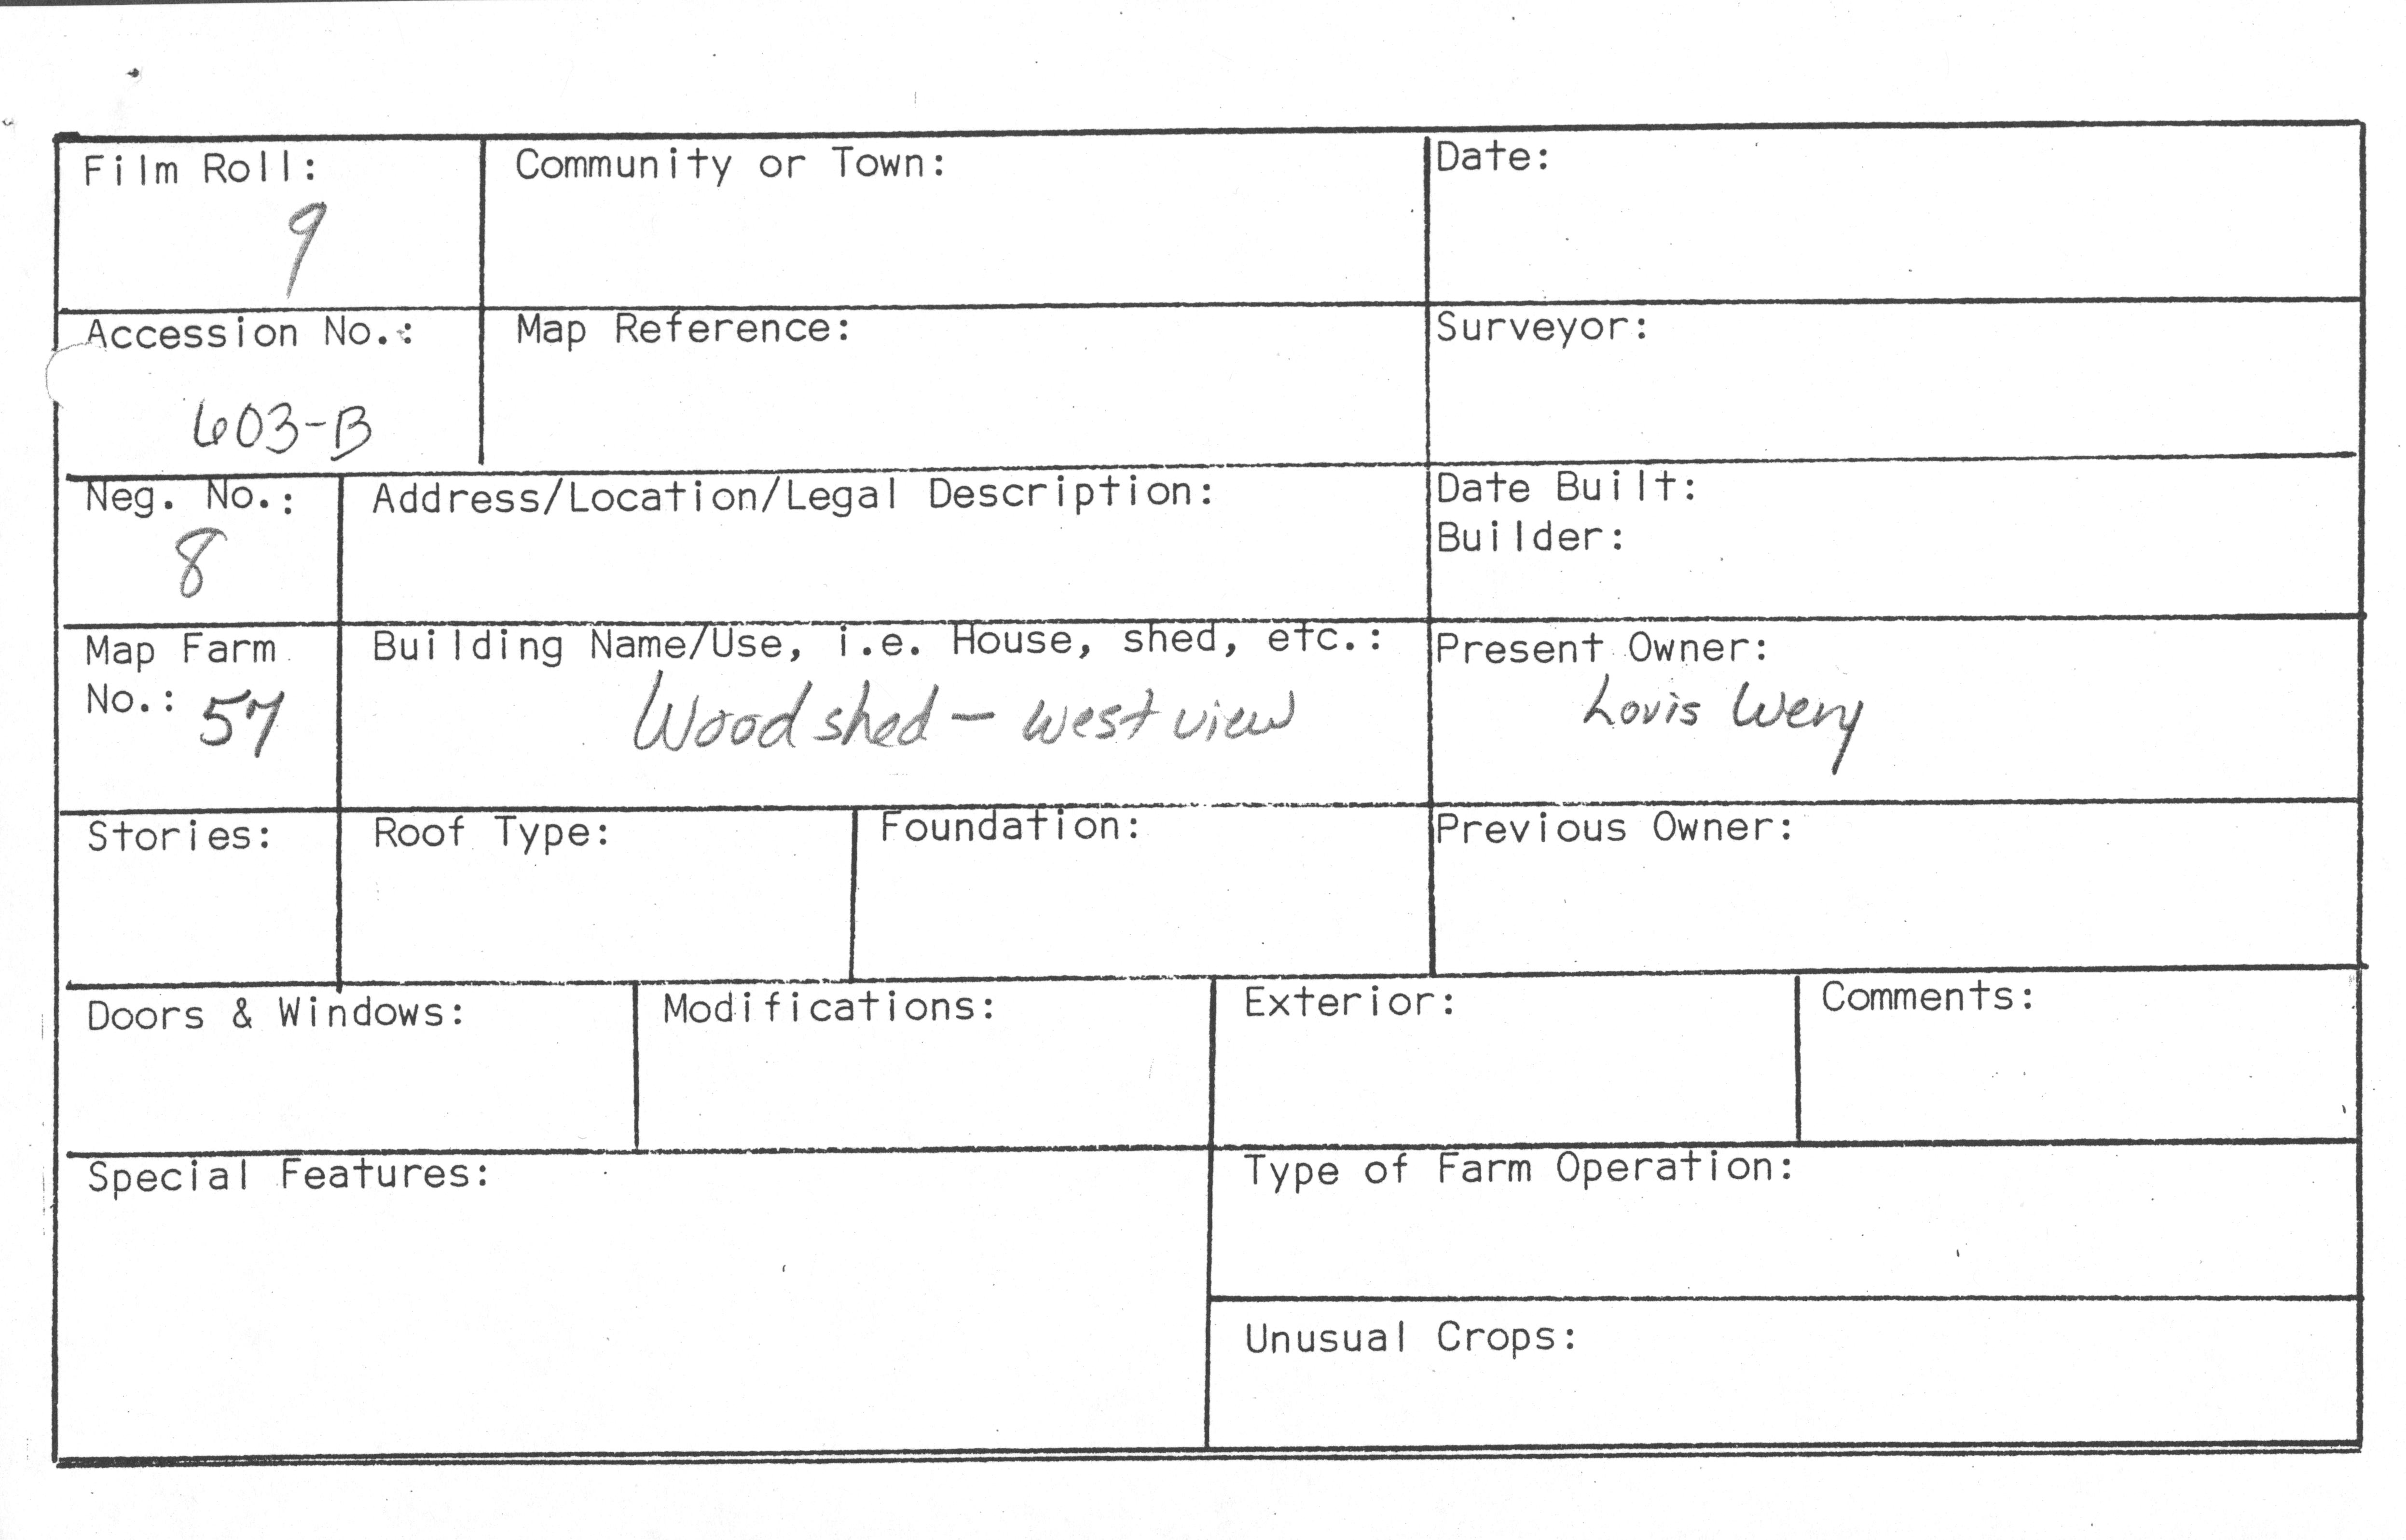 Film Roll:
9
Community or Town:
Date:
Accession No.:
603-B
Map Reference:
Surveyor:
Neg. No.:
8
Address/Location/Legal Description:
Date Built:
Builder:
Map Farm
No.: 57
Building Name/Use, i.e. House, shed, etc.:
Wood shed - west view
Present Owner:
Louis Wery
Stories:
Roof Type:
Foundation:
Previous Owner:
Doors & Windows:
Modifications:
Exterior:
Comments:
Special Features:
Type of Farm Operation:
Unusual Crops: